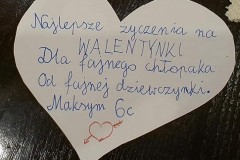 Najlepsze życzenia na
WALENTYNKI
Dla fajnego chłopaka
Od fajnej dziewczynki.
Maksym 6c